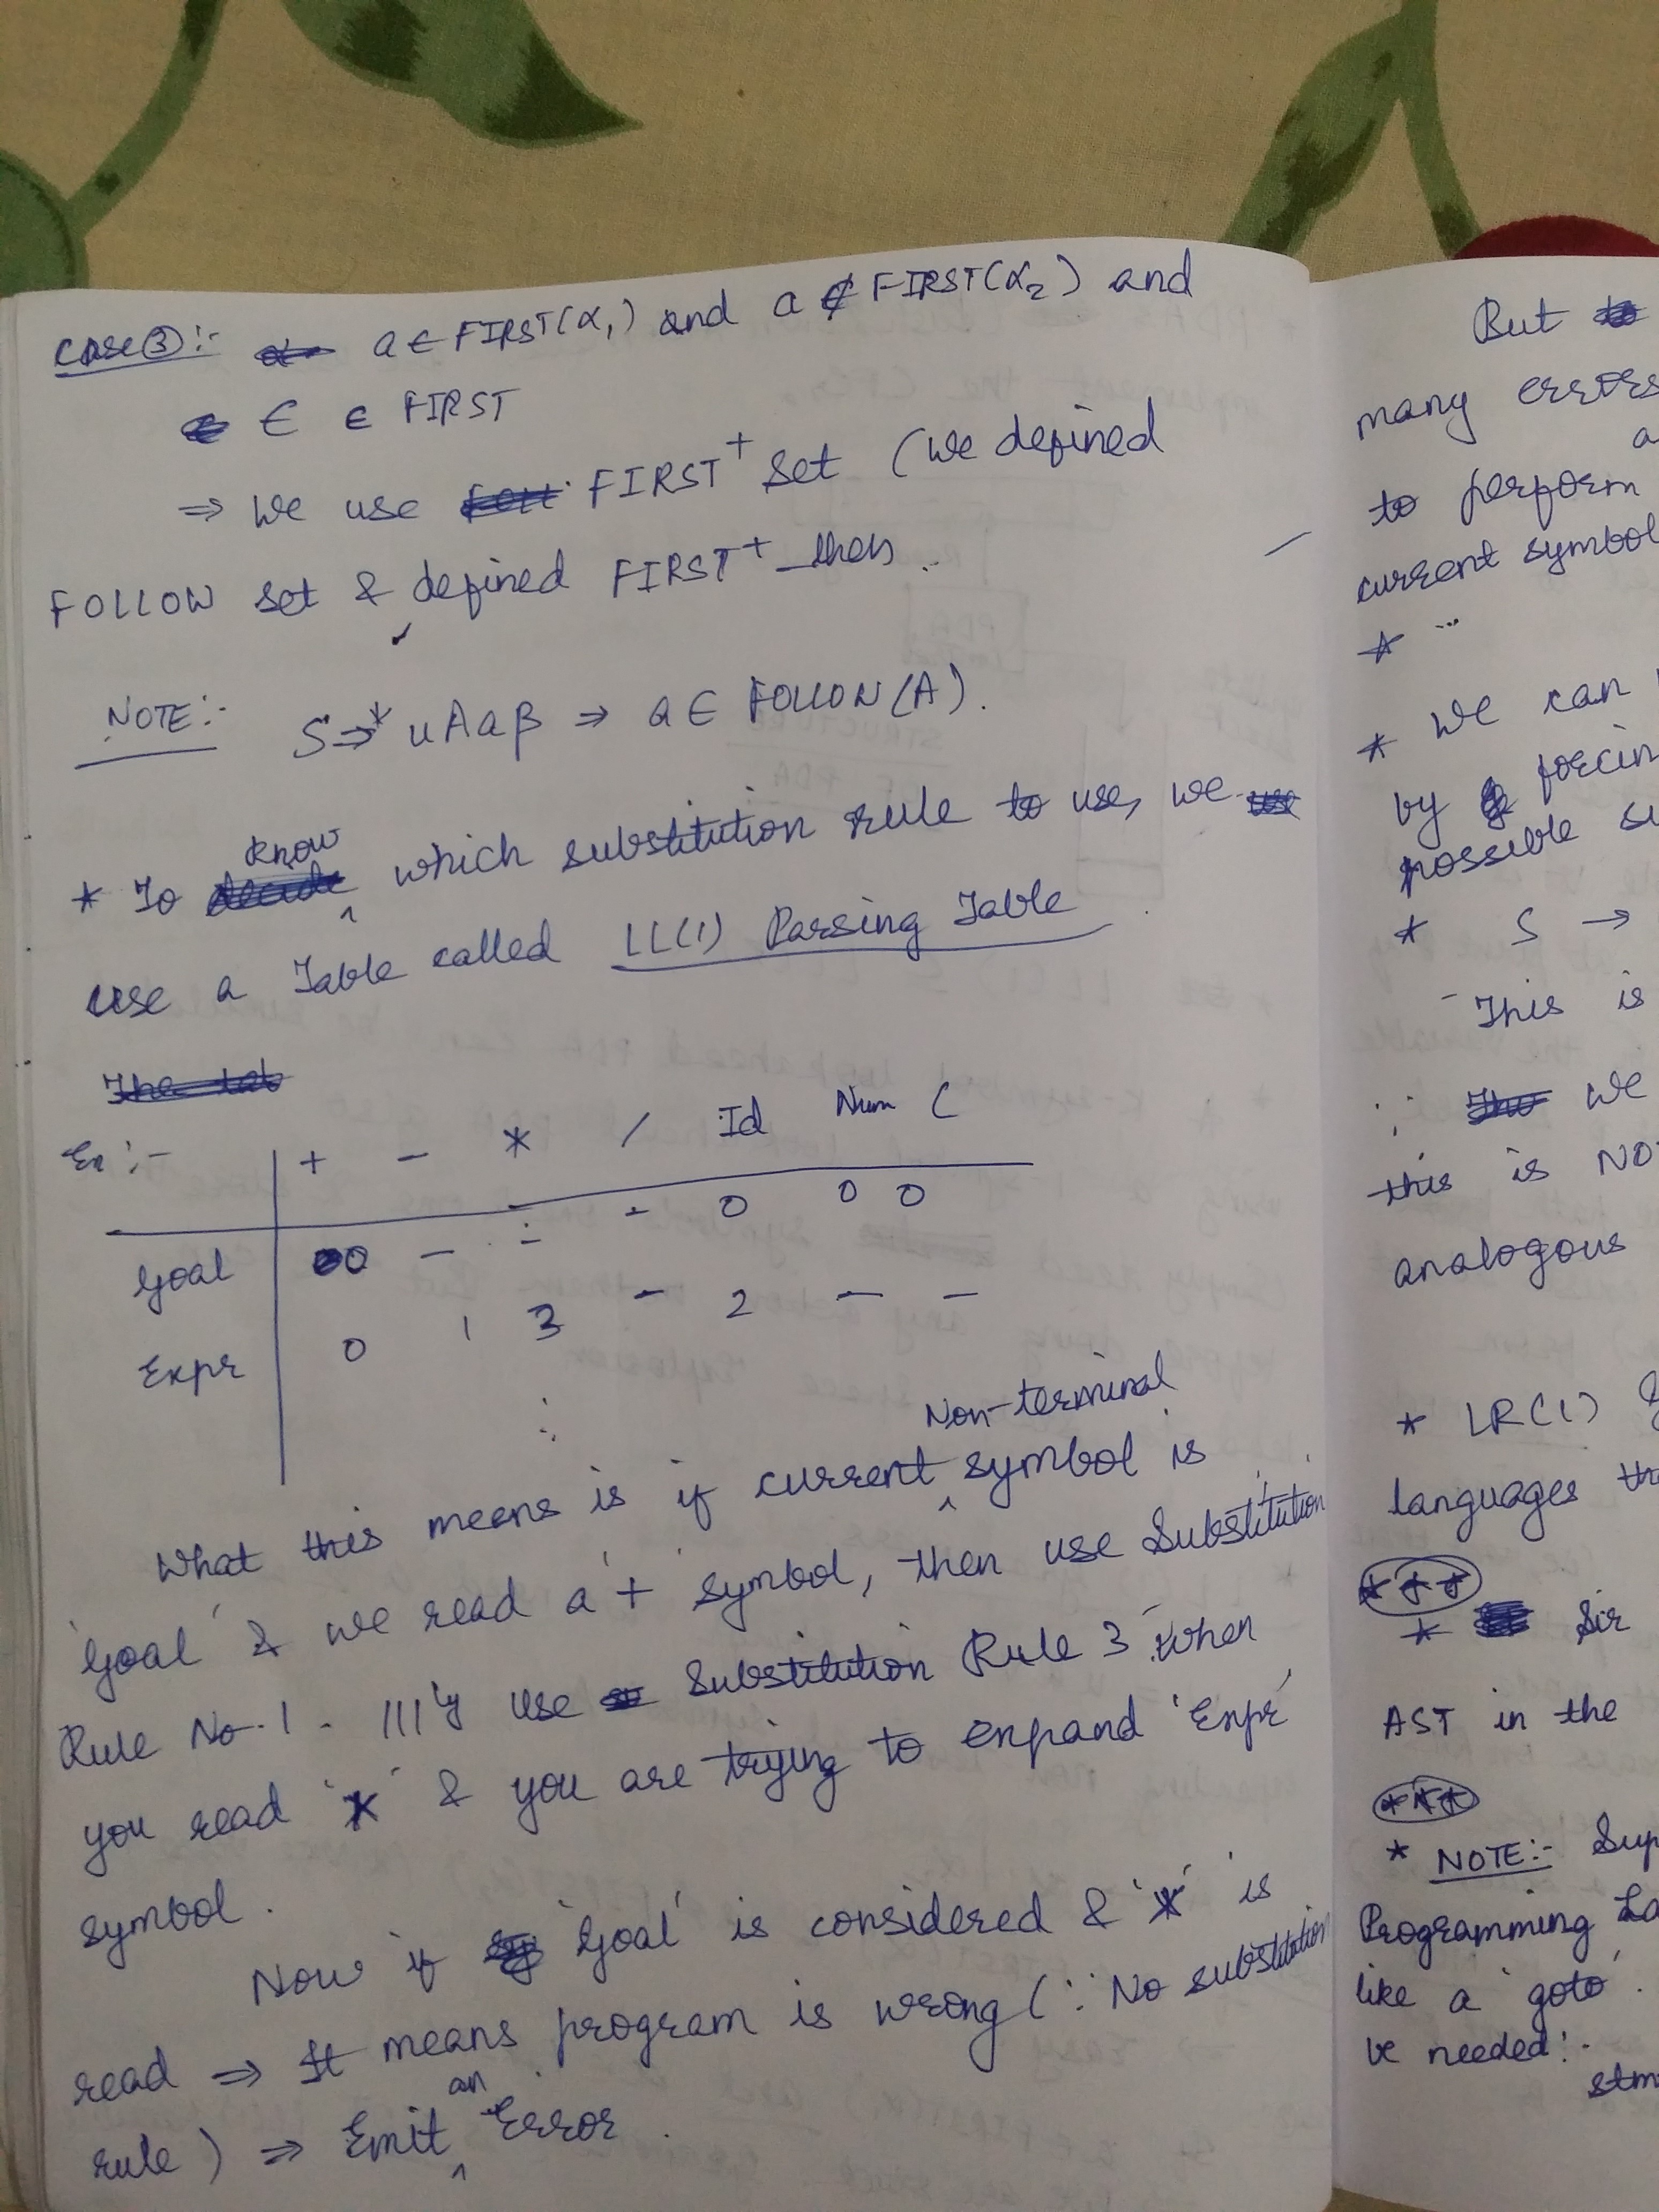 Case③:- a ∈ FIRST(α₁) and a ∉ FIRST(α₂) and
ϵ ∈ FIRST
⇒ We use FIRST⁺ set (We defined
FOLLOW set & defined FIRST⁺ then
NOTE:- S ⇒* uAaβ ⇒ a ∈ FOLLOW(A).
* To know which substitution rule to use, we
use a Table called LL(1) Parsing Table
Ex:- + - * / Id Num (
Goal 0 - - - 0 0 0
Expr 0 1 3 - 2 - -
⋮
What this means is if current Non-terminal symbol is
'Goal' & we read a '+' symbol, then use Substitution
Rule No. 1. |||ly use Substitution Rule 3 when
you read '*' & you are trying to expand 'Expr'
symbol.
Now if 'Goal' is considered & '*' is
read ⇒ It means program is wrong (∵ No substitution
rule) ⇒ Emit an Error.
But
many errors
a
to perform
current symbol
* ...
* We can
by forcin
possible su
* S →
This is
∴ We
this is NO
analogous
* LR(1)
languages th
***
* Sir
AST in the
***
* NOTE:- Sup
Programming La
like a 'goto'.
be needed!
stm